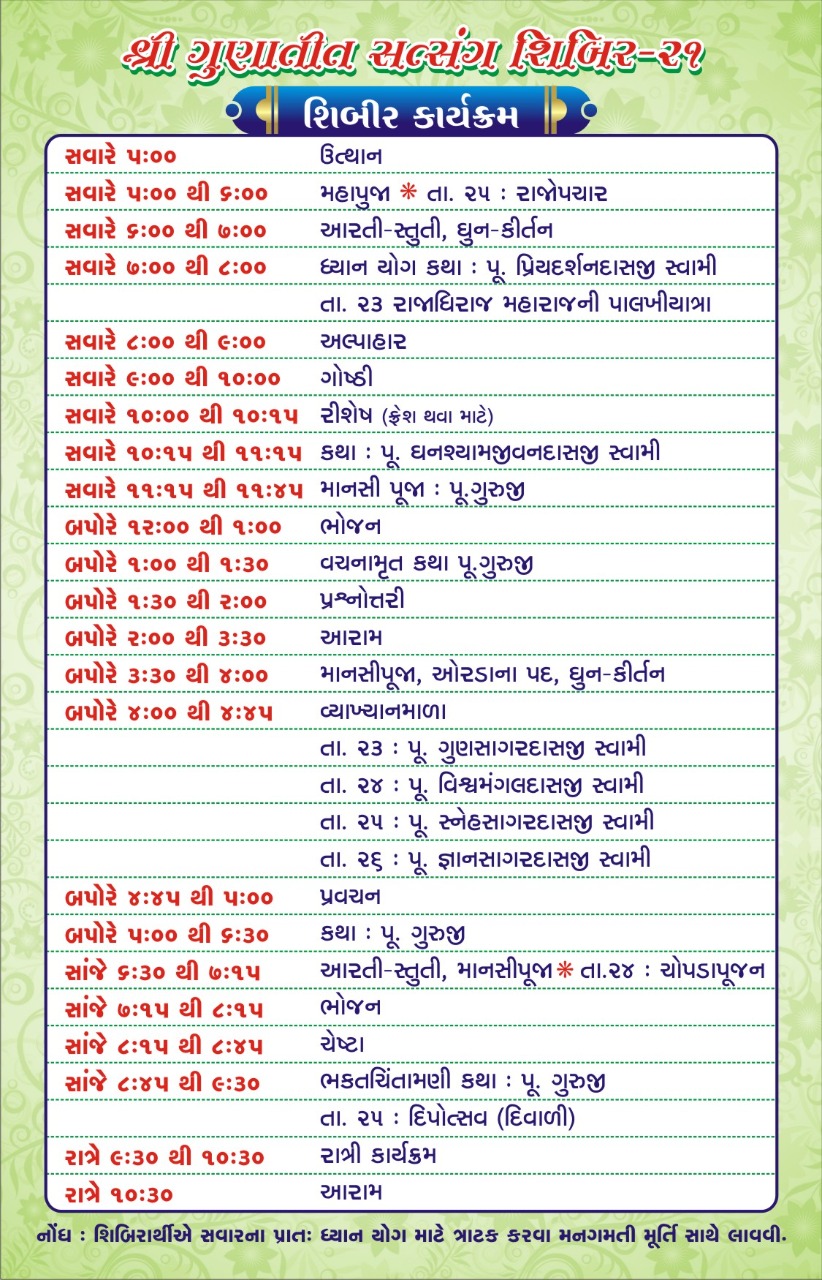 શ્રી ગુણાતીત સત્સંગ શિબિર-૨૧
શિબીર કાર્યક્રમ
સવારે ૫:૦૦ ઉત્થાન
સવારે ૫:૦૦ થી ૬:૦૦ મહાપુજા ❋ તા. ૨૫ : રાજોપચાર
સવારે ૬:૦૦ થી ૭:૦૦ આરતી-સ્તુતી, ધુન-કીર્તન
સવારે ૭:૦૦ થી ૮:૦૦ ધ્યાન યોગ કથા : પૂ. પ્રિયદર્શનદાસજી સ્વામી
તા. ૨૩ રાજાધિરાજ મહારાજની પાલખીયાત્રા
સવારે ૮:૦૦ થી ૯:૦૦ અલ્પાહાર
સવારે ૯:૦૦ થી ૧૦:૦૦ ગોષ્ઠી
સવારે ૧૦:૦૦ થી ૧૦:૧૫ રીશેષ (ફ્રેશ થવા માટે)
સવારે ૧૦:૧૫ થી ૧૧:૧૫ કથા : પૂ. ઘનશ્યામજીવનદાસજી સ્વામી
સવારે ૧૧:૧૫ થી ૧૧:૪૫ માનસી પૂજા : પૂ.ગુરુજી
બપોરે ૧૨:૦૦ થી ૧:૦૦ ભોજન
બપોરે ૧:૦૦ થી ૧:૩૦ વચનામૃત કથા પૂ.ગુરુજી
બપોરે ૧:૩૦ થી ૨:૦૦ પ્રશ્નોત્તરી
બપોરે ૨:૦૦ થી ૩:૩૦ આરામ
બપોરે ૩:૩૦ થી ૪:૦૦ માનસીપૂજા, ઓરડાના પદ, ધુન-કીર્તન
બપોરે ૪:૦૦ થી ૪:૪૫ વ્યાખ્યાનમાળા
તા. ૨૩ : પૂ. ગુણસાગરદાસજી સ્વામી
તા. ૨૪ : પૂ. વિશ્વમંગલદાસજી સ્વામી
તા. ૨૫ : પૂ. સ્નેહસાગરદાસજી સ્વામી
તા. ૨૬ : પૂ. જ્ઞાનસાગરદાસજી સ્વામી
બપોરે ૪:૪૫ થી ૫:૦૦ પ્રવચન
બપોરે ૫:૦૦ થી ૬:૩૦ કથા : પૂ. ગુરુજી
સાંજે ૬:૩૦ થી ૭:૧૫ આરતી-સ્તુતી, માનસીપૂજા ❋ તા.૨૪ : ચોપડાપૂજન
સાંજે ૭:૧૫ થી ૮:૧૫ ભોજન
સાંજે ૮:૧૫ થી ૮:૪૫ ચેષ્ટા
સાંજે ૮:૪૫ થી ૯:૩૦ ભકતચિંતામણી કથા : પૂ. ગુરુજી
તા. ૨૫ : દિપોત્સવ (દિવાળી)
રાત્રે ૯:૩૦ થી ૧૦:૩૦ રાત્રી કાર્યક્રમ
રાત્રે ૧૦:૩૦ આરામ
નોંધ : શિબિરાર્થીએ સવારના પ્રાતઃ ધ્યાન યોગ માટે ત્રાટક કરવા મનગમતી મૂર્તિ સાથે લાવવી.